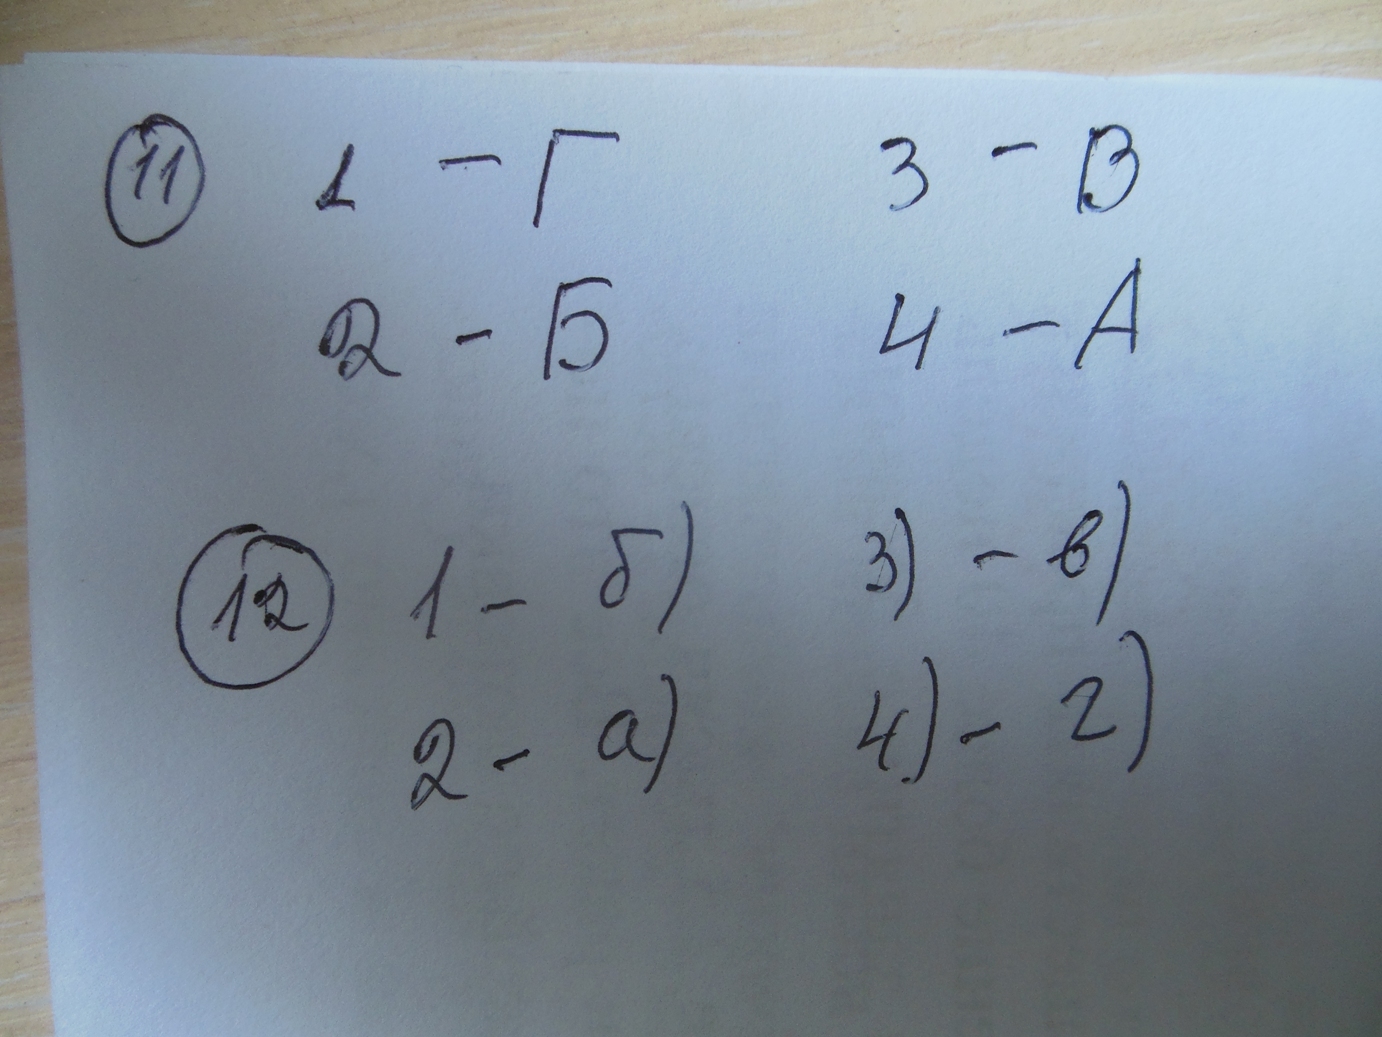 11 1 - Г 3 - В
2 - Б 4 - А
12 1 - б) 3) - в)
2 - а) 4) - г)